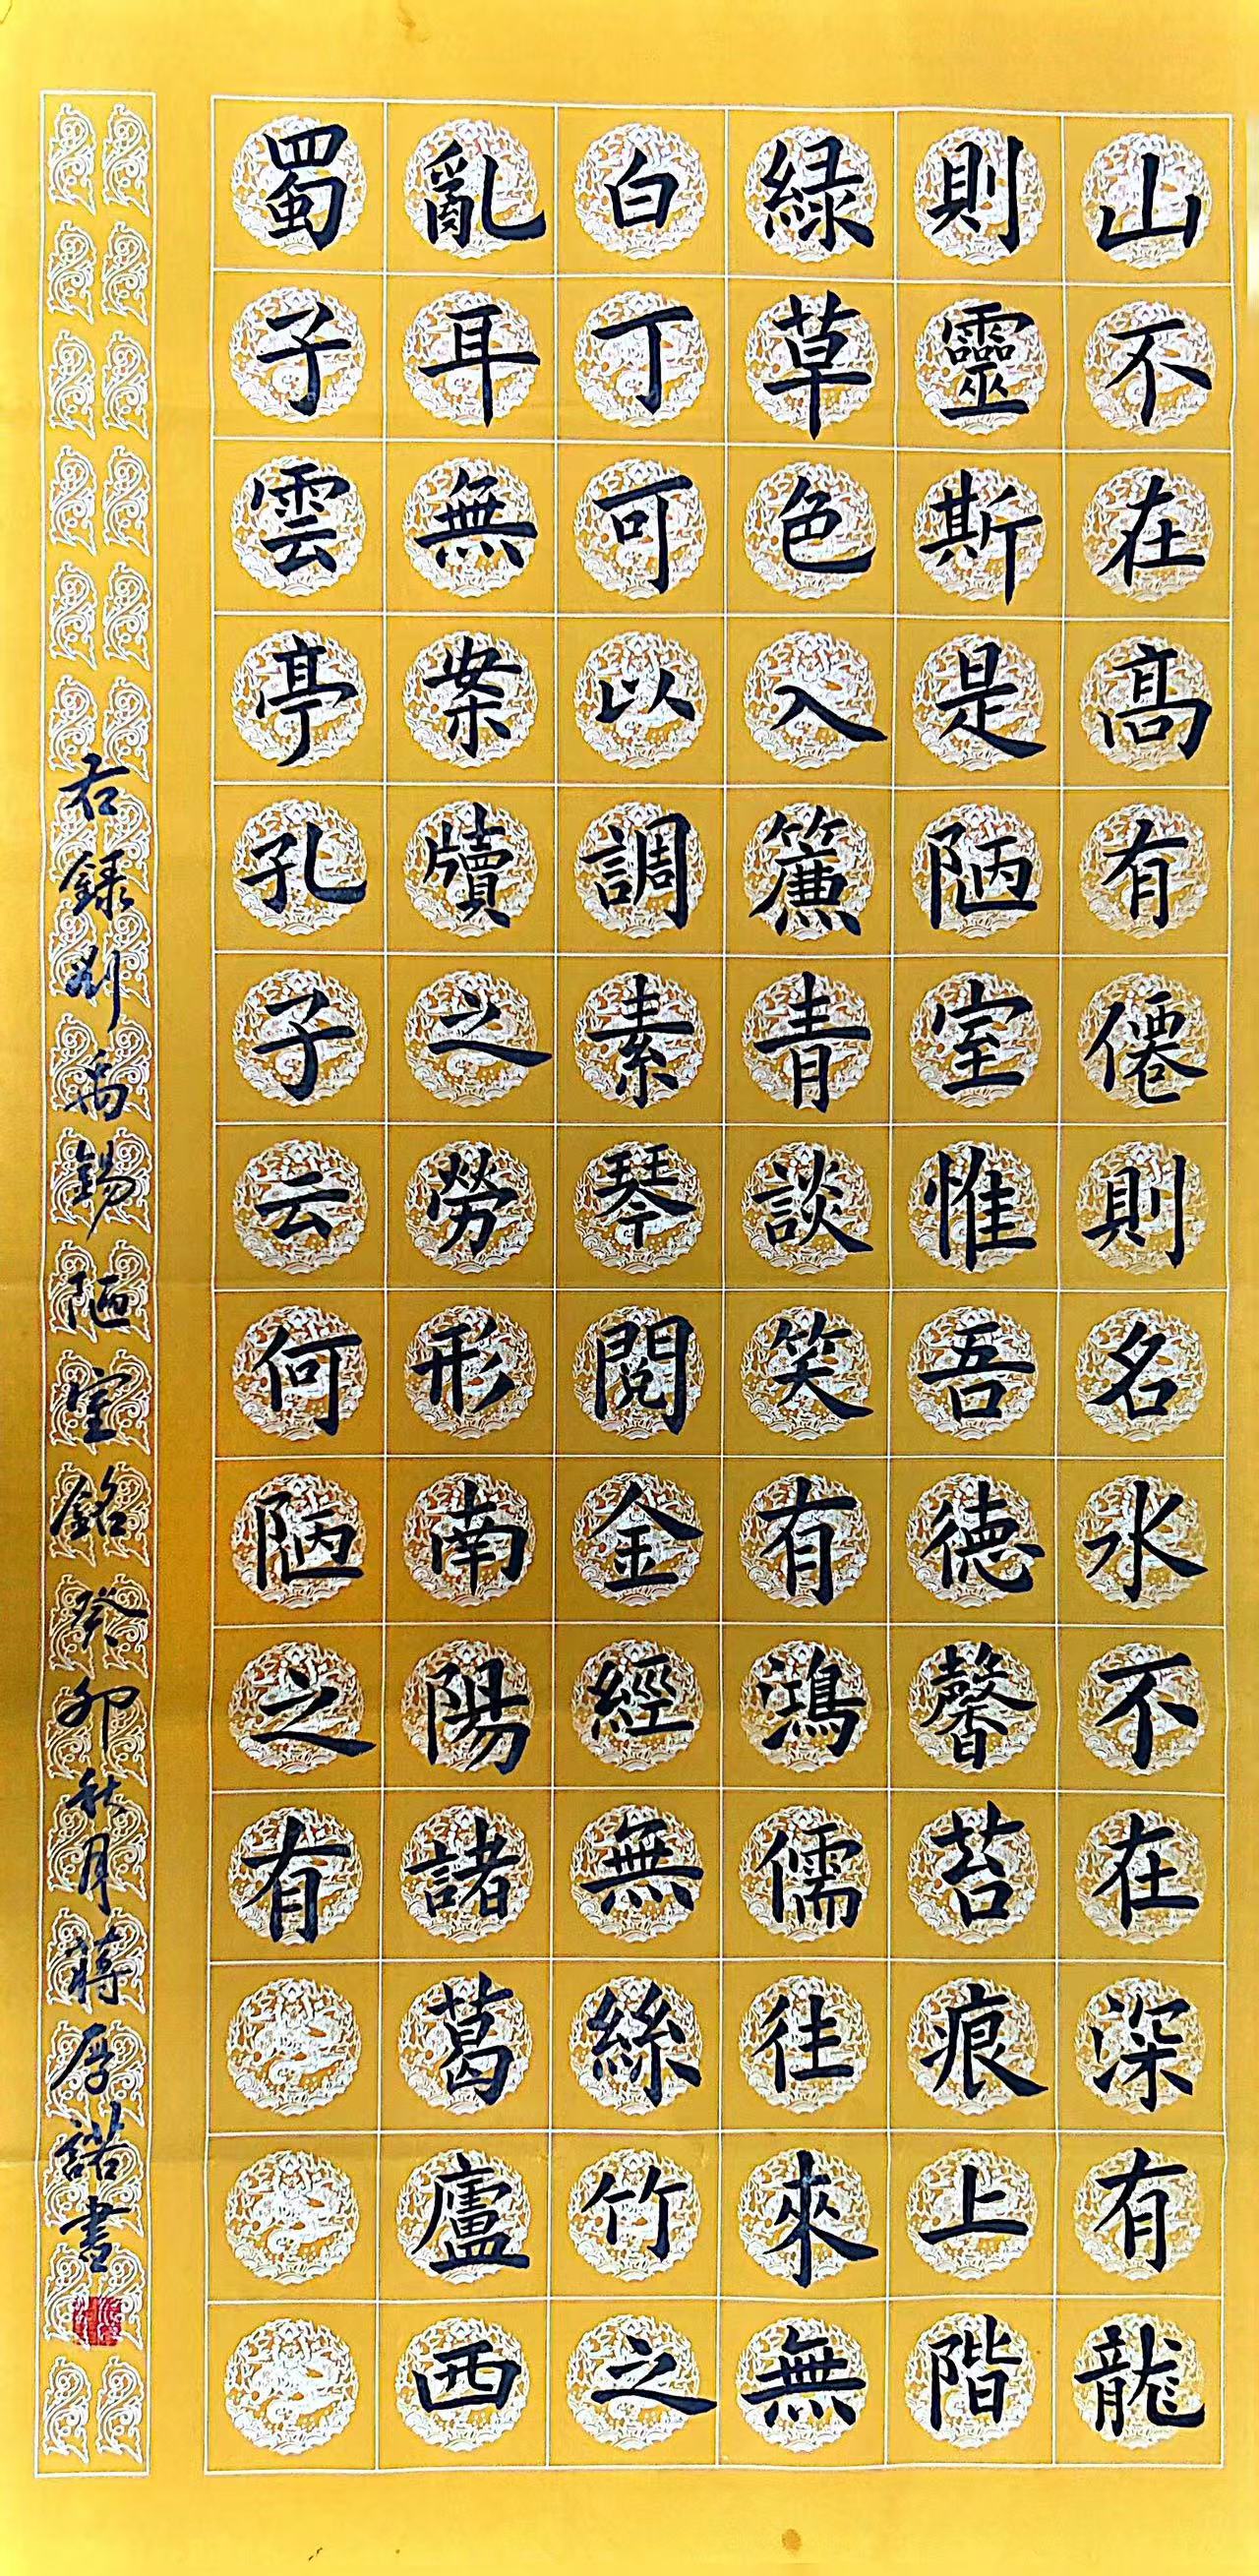 山不在高有僊則名水不在深有龍
則靈斯是陋室惟吾德馨苔痕上階
緑草色入簾青談笑有鴻儒往來無
白丁可以調素琴閱金經無絲竹之
亂耳無案牘之勞形南陽諸葛廬西
蜀子雲亭孔子云何陋之有
右録劉禹錫陋室銘癸卯秋月蔣厚諾書